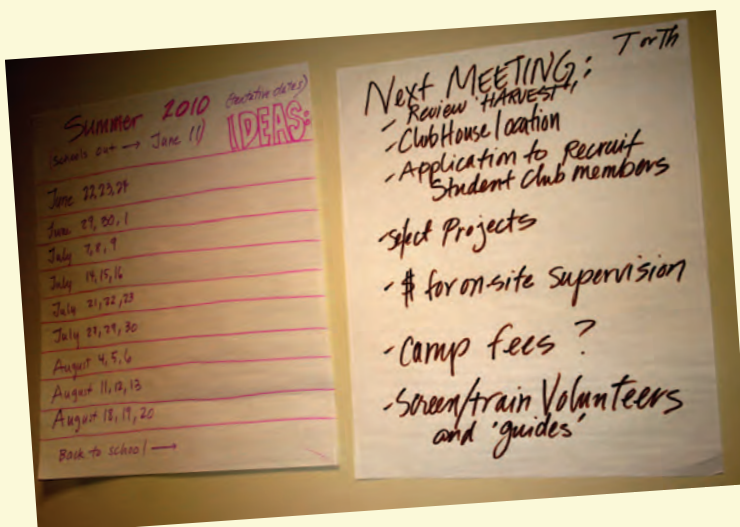 Summer 2010 (tentative dates)
(schools out → June 11)
IDEAS:
June 22,23,24
June 29, 30, 1
July 7, 8, 9
July 14, 15, 16
July 21, 22, 23
July 28, 29, 30
August 4, 5, 6
August 11, 12, 13
August 18, 19, 20
Back to school →
T or Th
Next MEETING:
- Review "HARVEST"
- ClubHouse location
- Application to Recruit
Student Club members
- select Projects
- $ for on-site Supervision
- Camp fees ?
- Screen/train Volunteers
and 'guides'